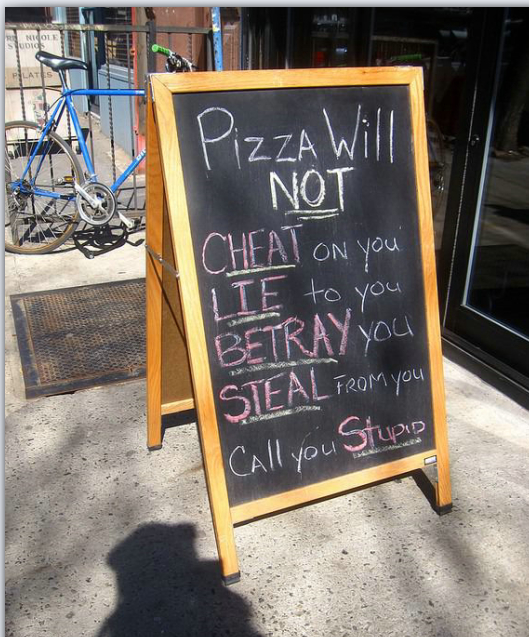 NICOLE
STUDIOS
PILATES
Pizza Will
NOT
CHEAT ON you
LIE to you
BETRAY you
STEAL FROM you
CALL you Stupid